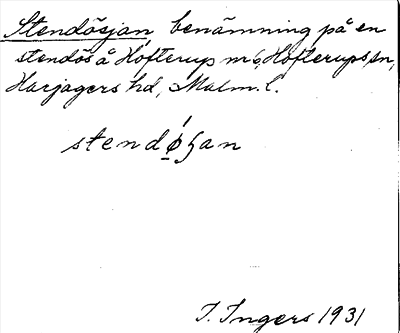 Stendösjan, benämning på en
stendös å Hofterup nr 6, Hofterups sn,
Harjagers hd, Malm. l.
stendø̱ʹʒan
I. Ingers 1931